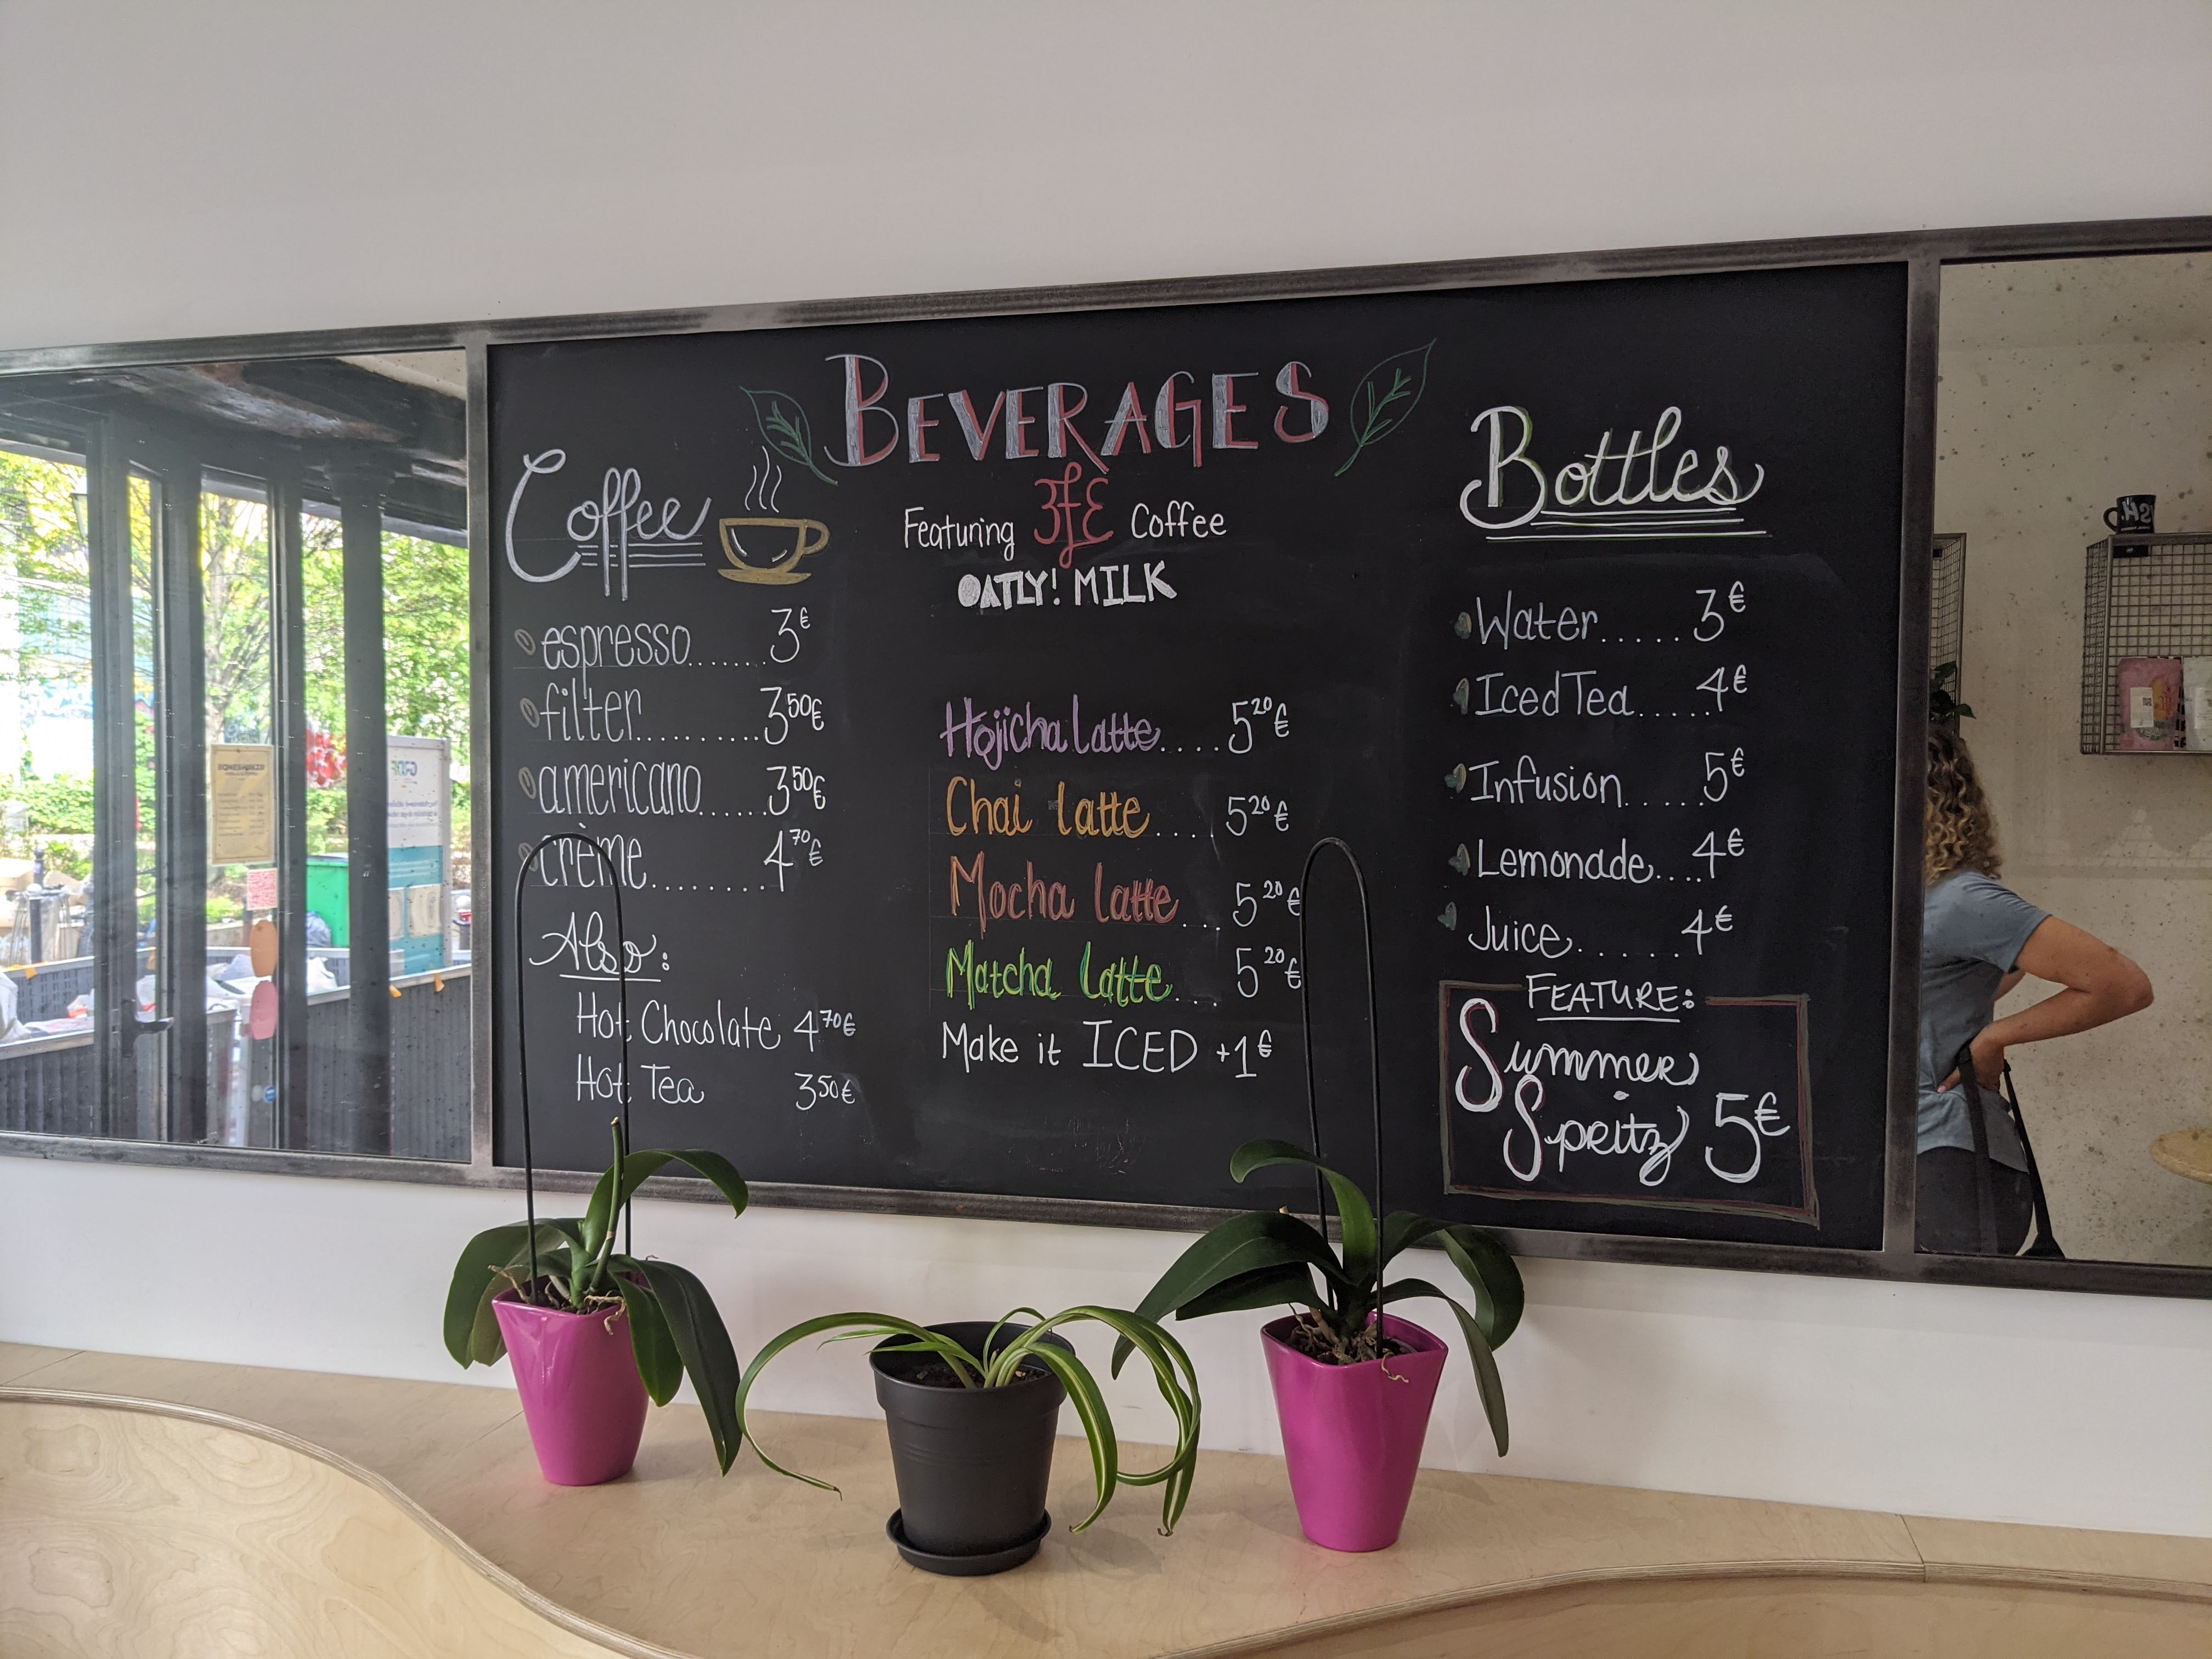 BEVERAGES
Featuring 3fE Coffee
OATLY! MILK
Coffee
espresso.......3€
filter..........350€
americano......350€
crème........470€
Also:
Hot Chocolate 470€
Hot Tea 350€
Hojicha latte....520€
Chai latte....520€
Mocha latte...520€
Matcha latte...520€
Make it ICED +1€
Bottles
Water.....3€
Iced Tea.....4€
Infusion.....5€
Lemonade....4€
Juice......4€
FEATURE:
Summer
Spritz 5€